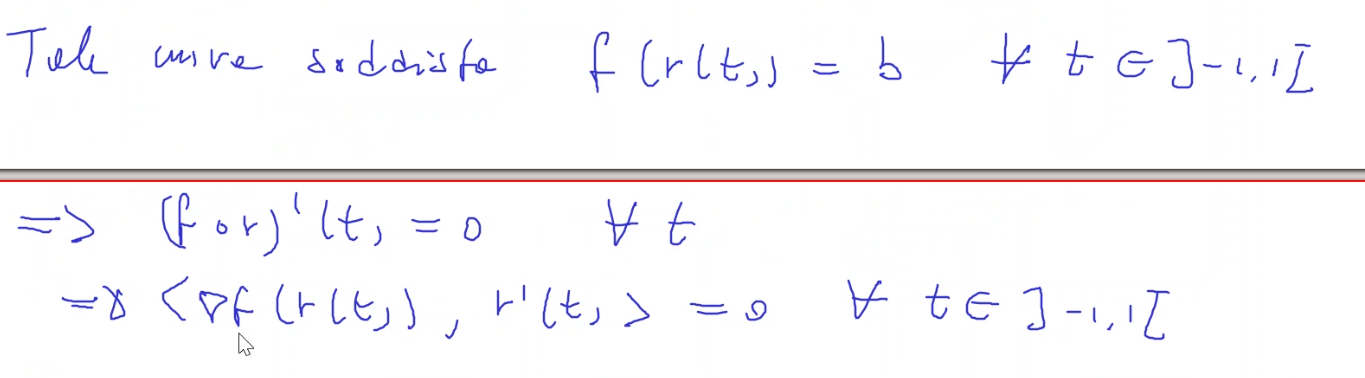 Tale curva soddisfa f(r(t)) = b ∀ t ∈ ]-1,1[
=> (f∘r)'(t) = 0 ∀ t
=> <∇f(r(t)), r'(t)> = 0 ∀ t ∈ ]-1,1[